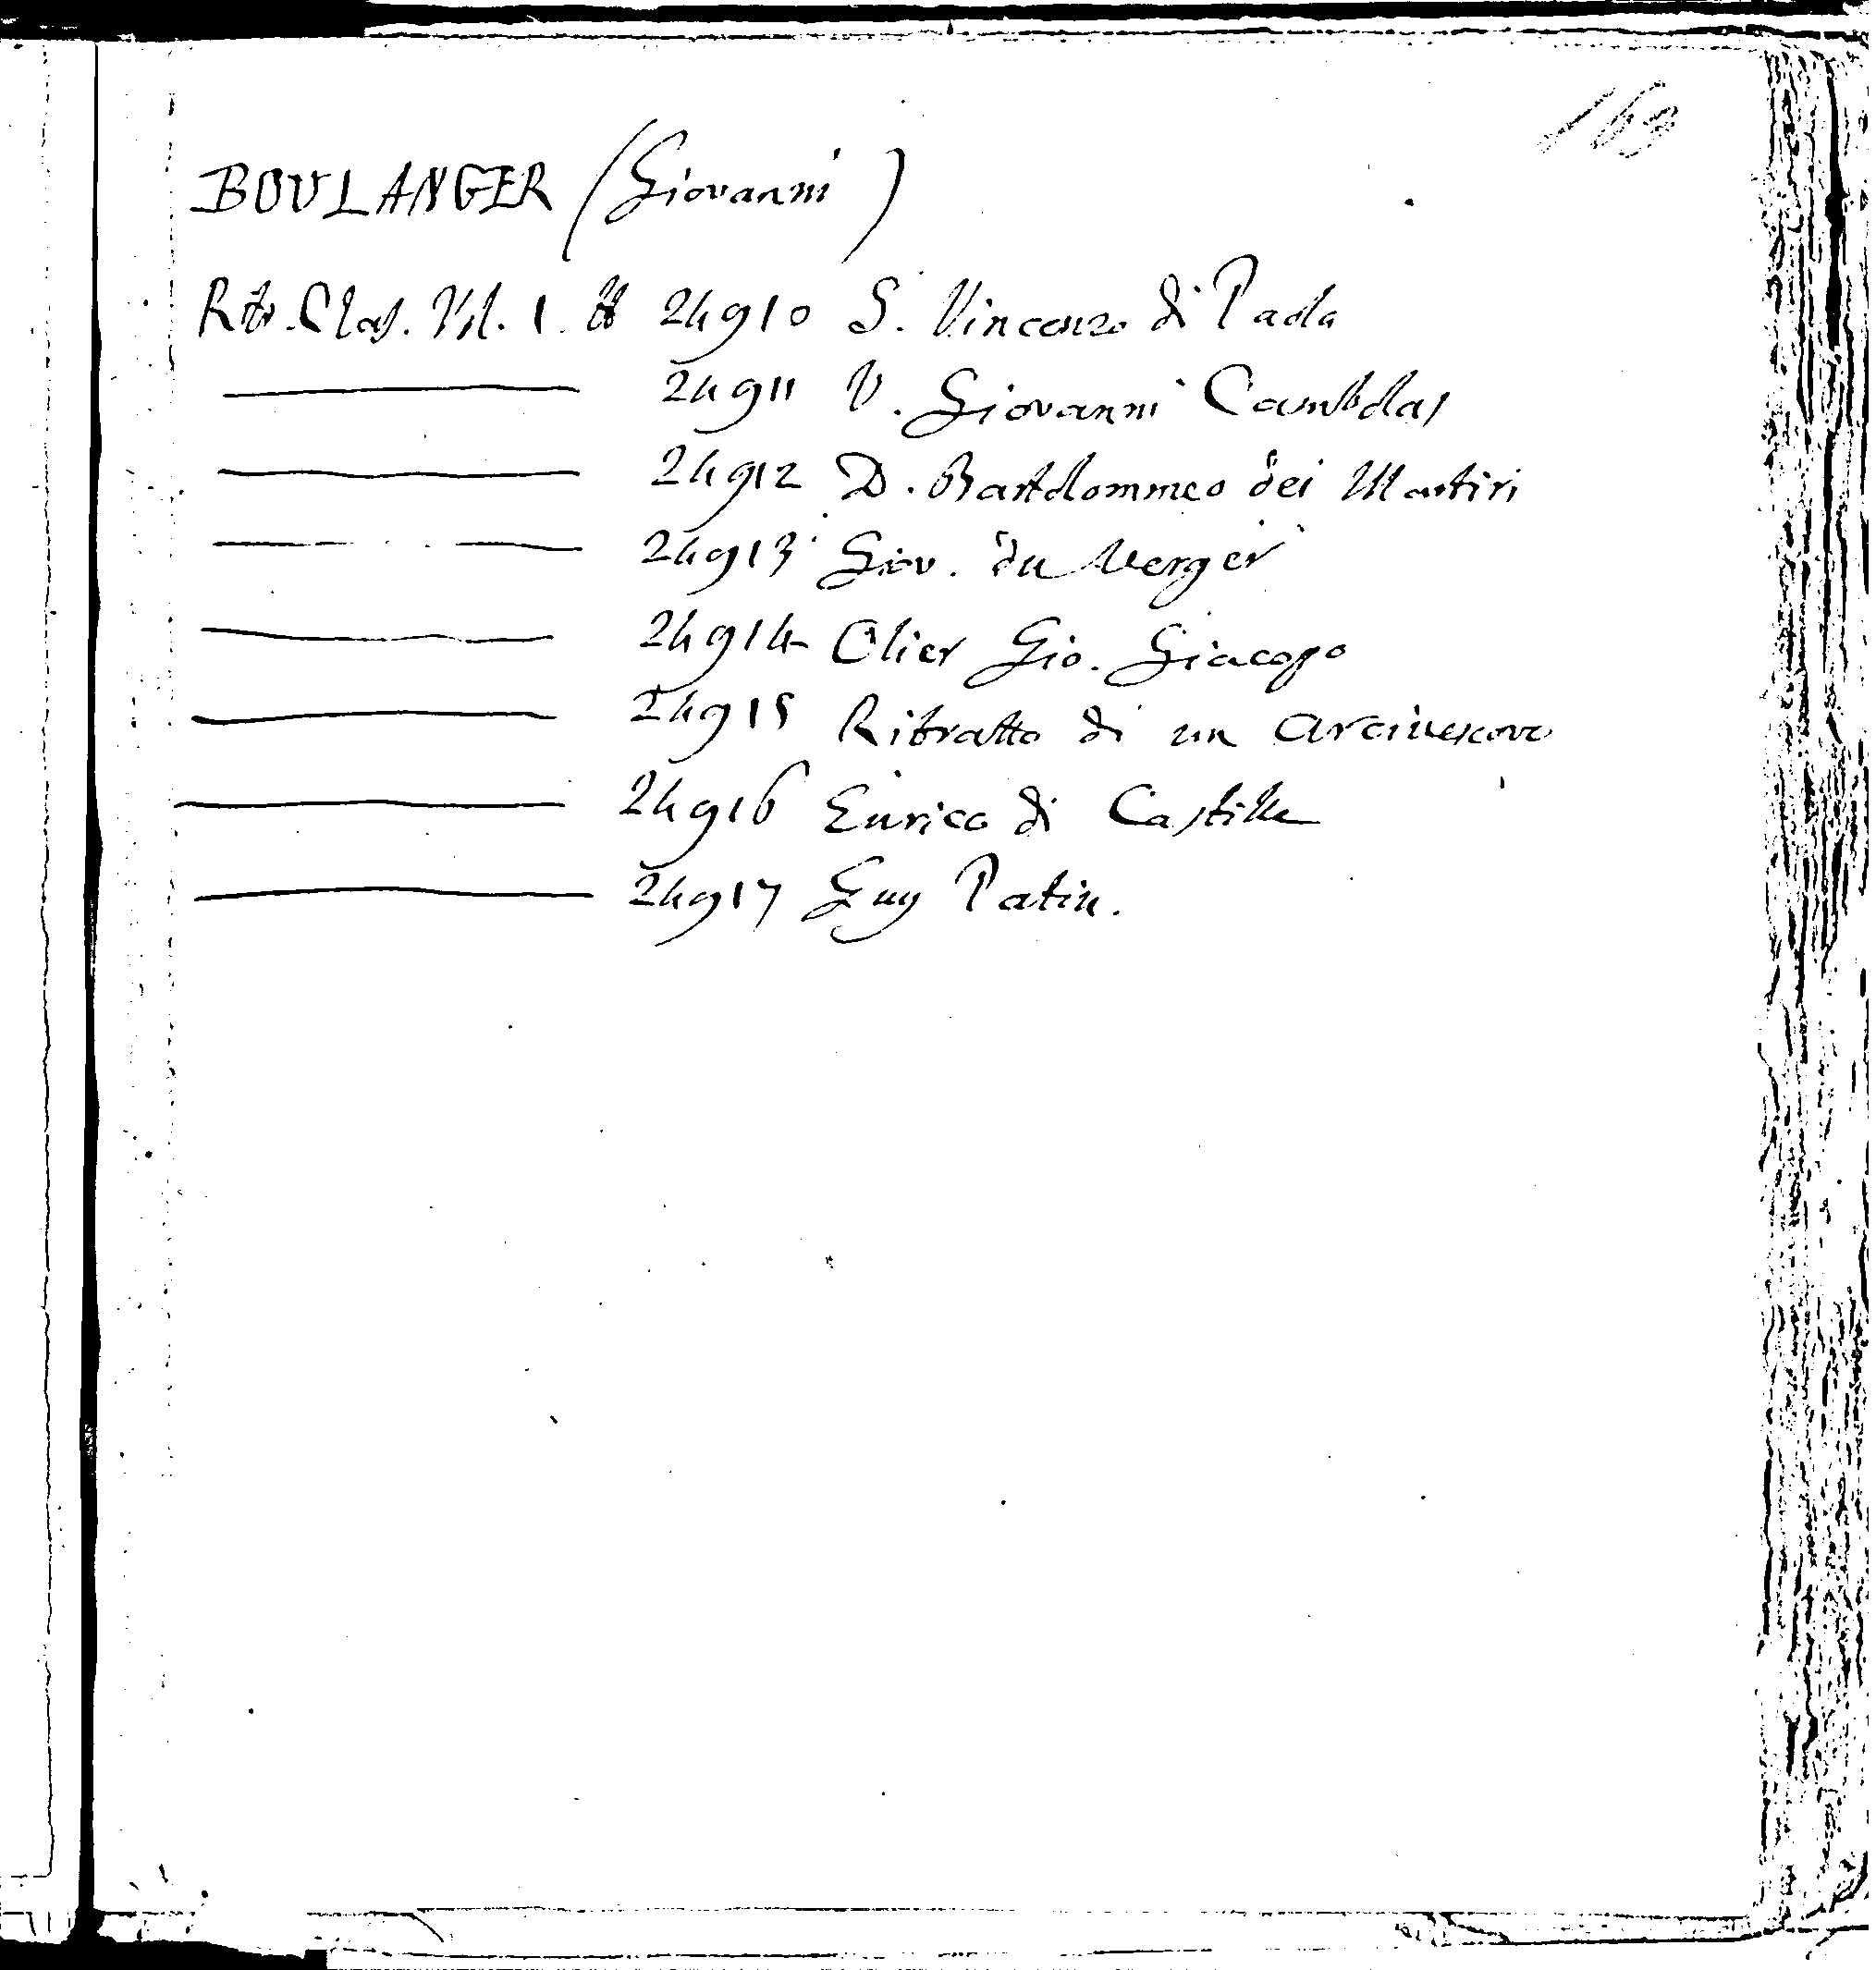 163
BOULANGER (Giovanni)
Ritr. Clas. Vol. 1. 24910 S. Vincenzo di Paola
24911 V. Giovanni
24912 D. Bartolommeo dei Martiri
24913 Giov. du Verger
24914 Olier Gio. Giacopo
24915 Ritratto di un arcivescovo
24916 Enrico di Castille
24917 Guy Patin.